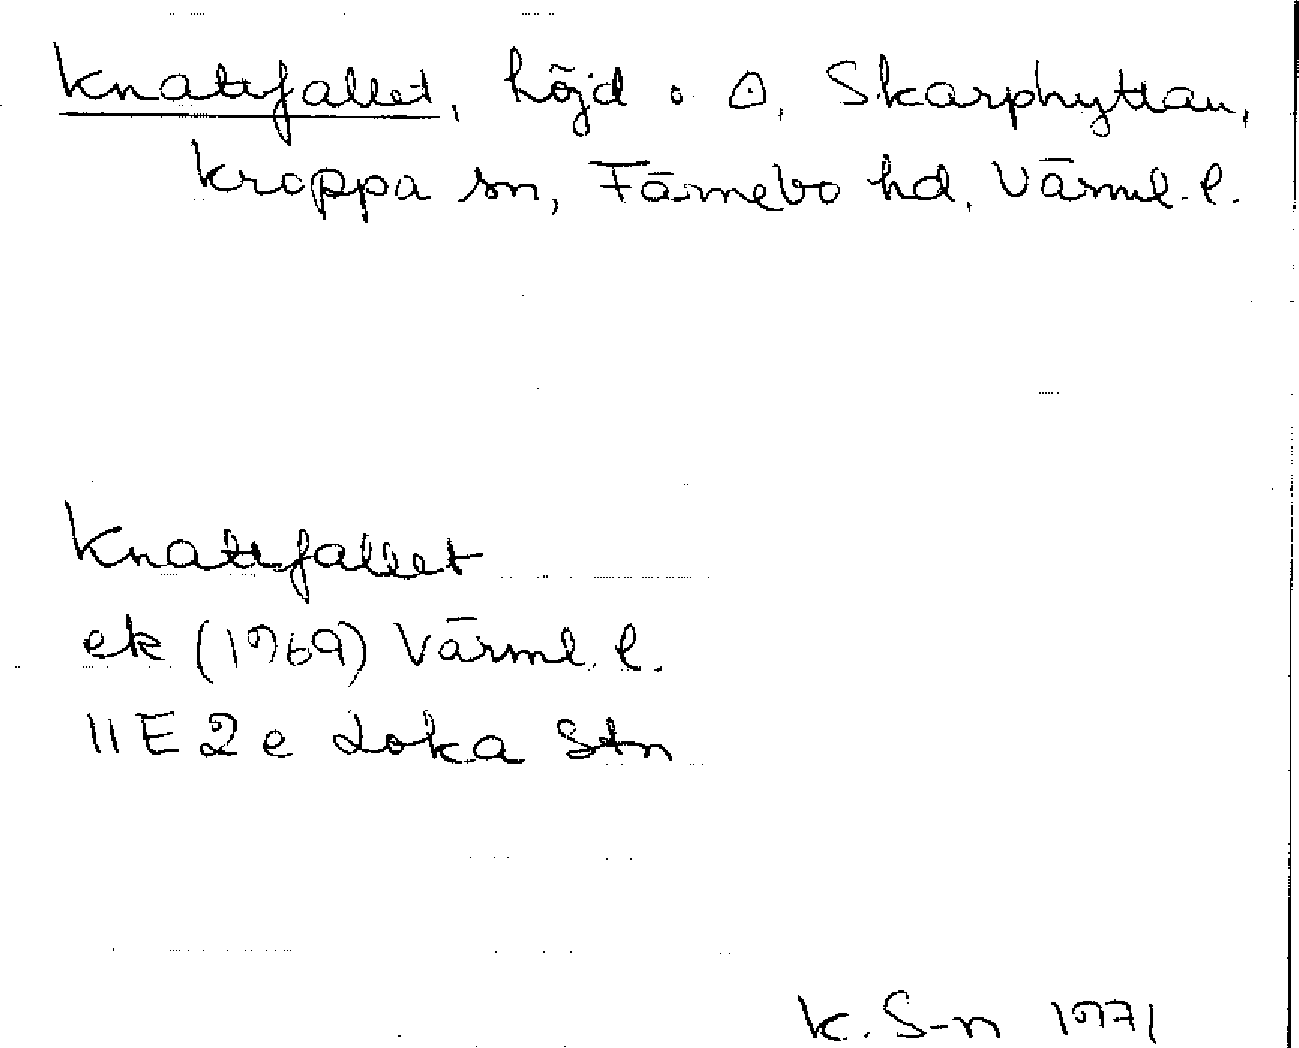 Knattfallet, höjd o ⊙, Skarphyttan,
Kroppa sn, Färnebo hd, Värml. l.
Knattfallet
ek (1969) Värml. l.
11E 2e Loka Stn
K. S-n 1971